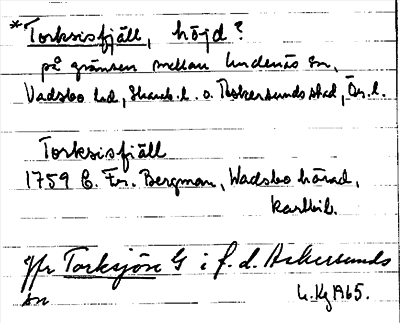 *Torksisfjäll, höjd?
på gränsen mellan Undenäs sn,
Vadsbo hd, Skarab. l. o. Askersunds stad, Ör. l.
Torksisfjäll
1759 E. Fr. Bergman, Wadsbo härad,
kartbib.
Jfr Torksjön G i f. d. Askersunds
sn
L. Kg 1965.